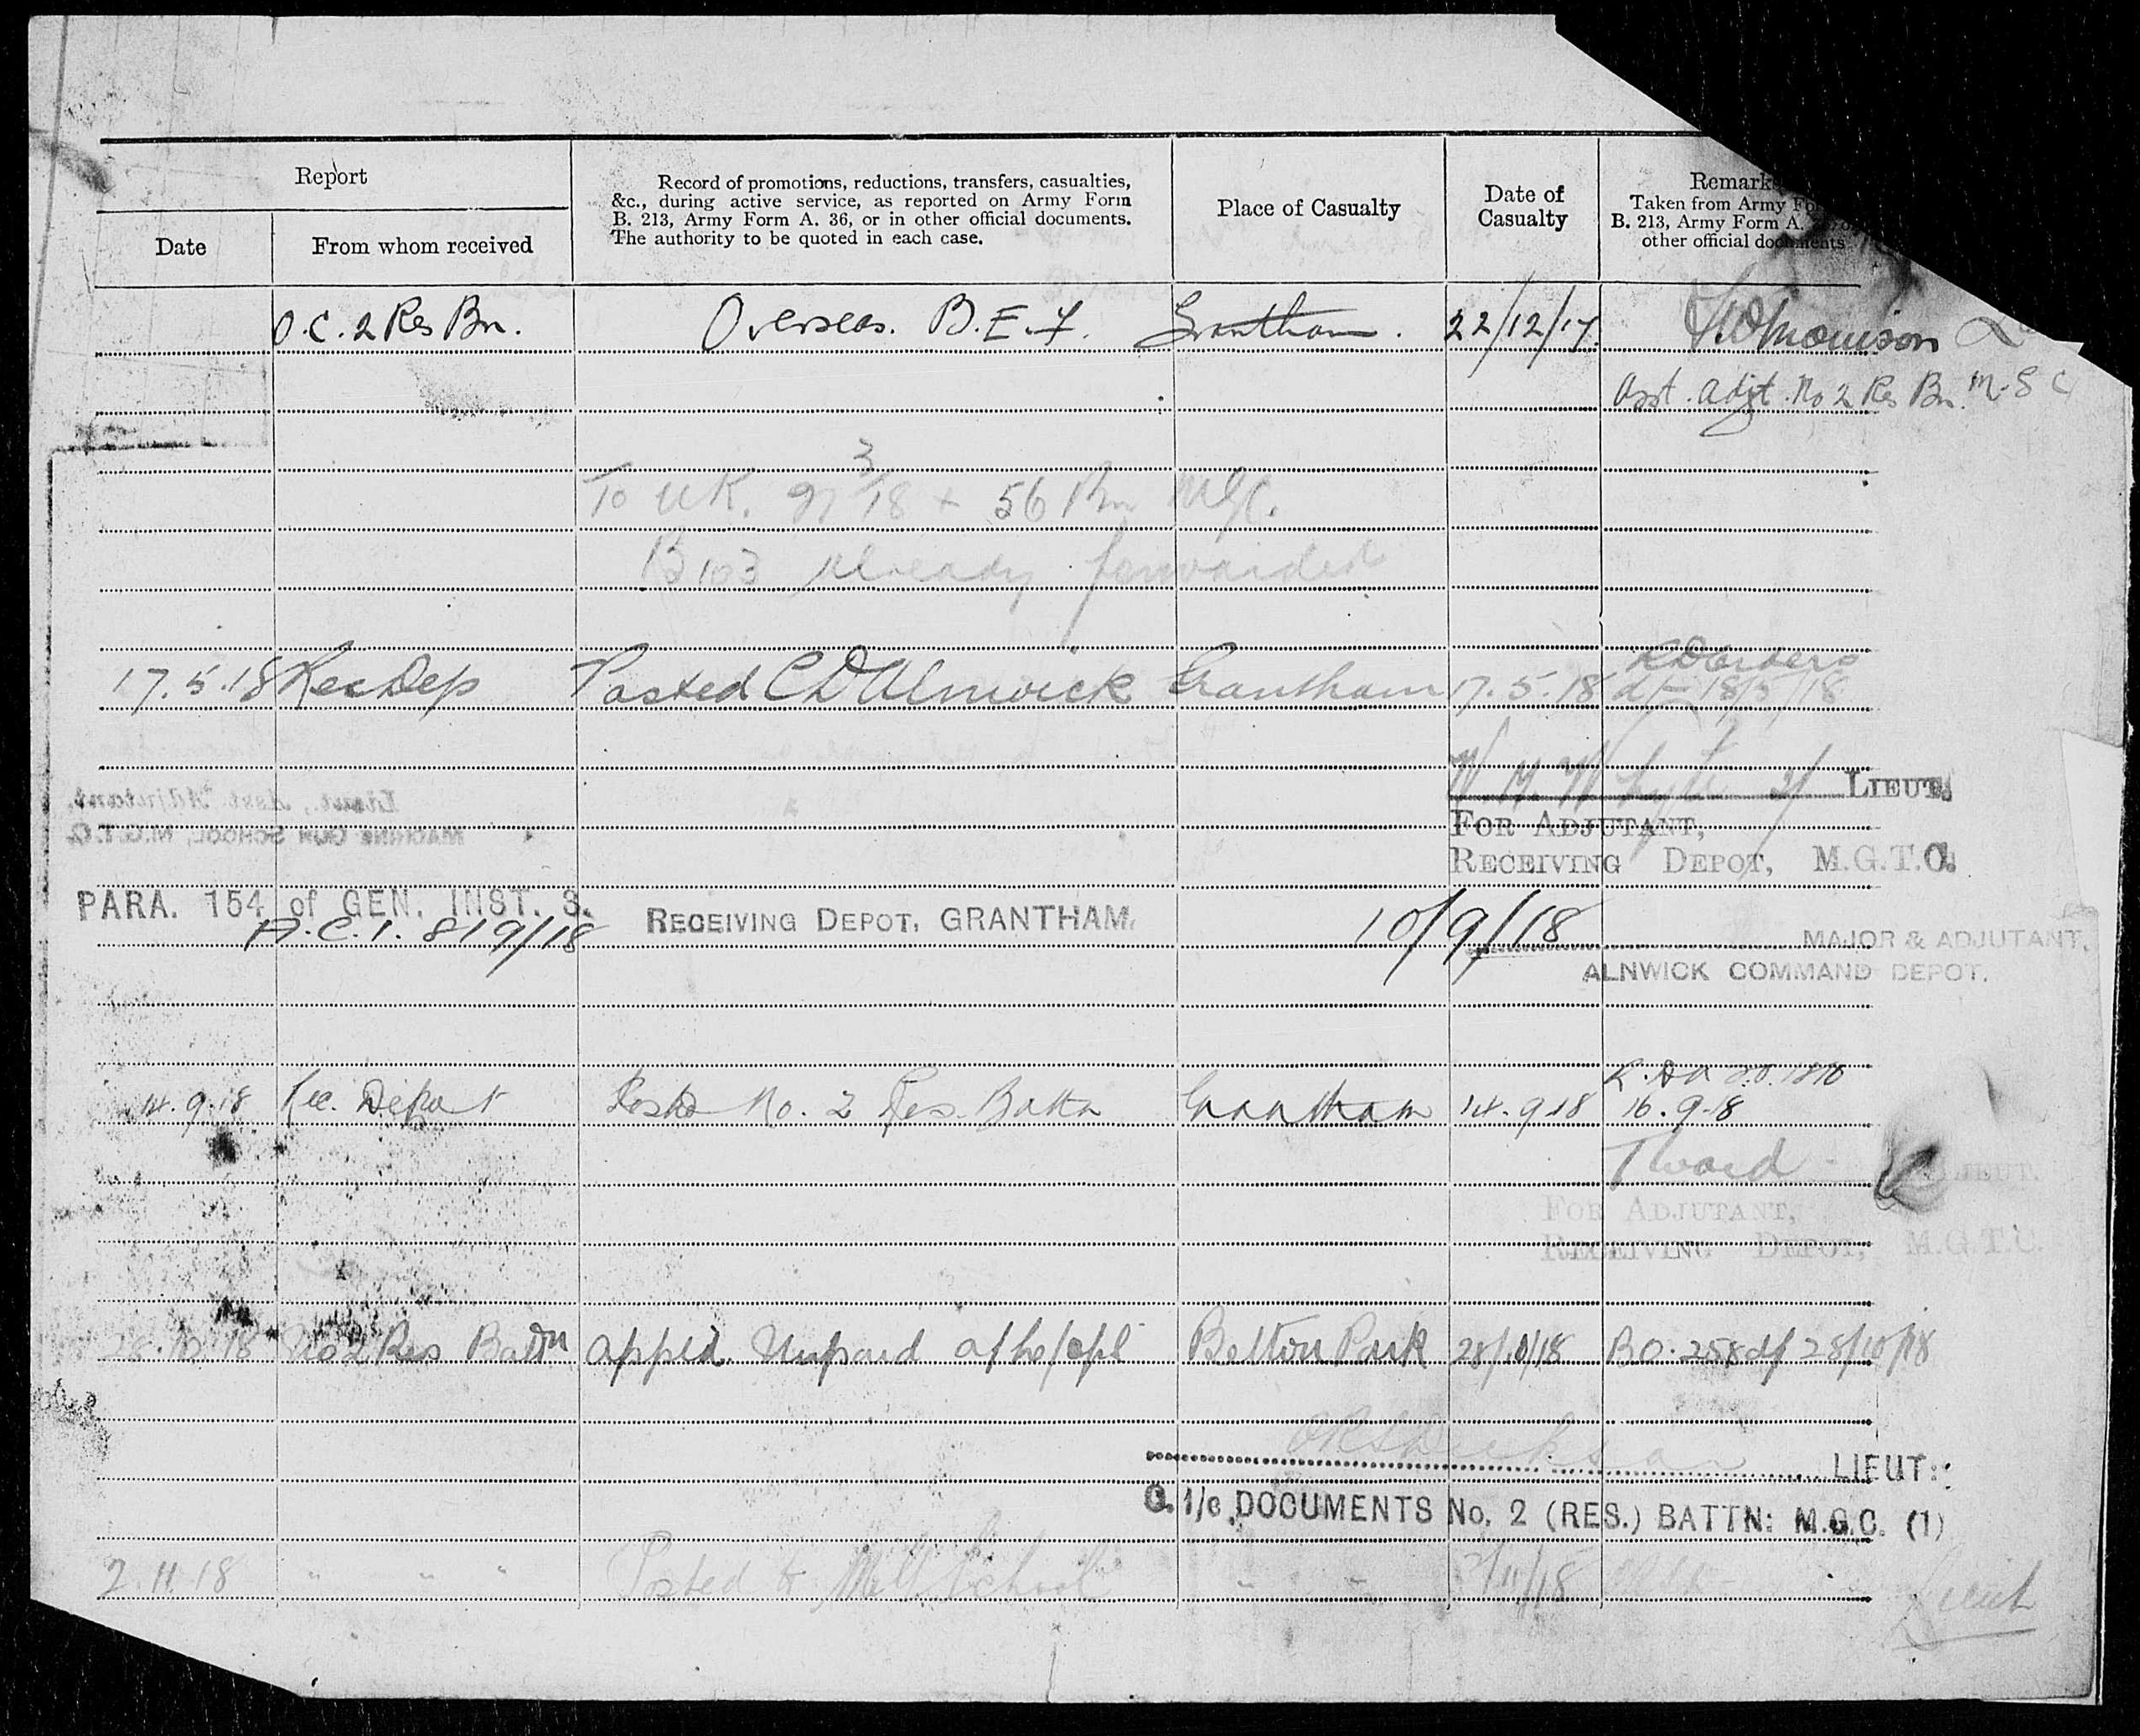 Report
Date
From whom received
Record of promotions, reductions, transfers, casualties,
&c., during active service, as reported on Army Form
B. 213, Army Form A. 36, or in other official documents.
The authority to be quoted in each case.
Place of Casualty
Date of
Casualty
Remarks
Taken from Army
B. 213, Army Form A.
other official documents
O.C. 2 Res Bn. Overseas. B.E.F. Grantham. 22/12/17
Asst. Adjt. No 2 Res Bn. M.G.C
3
To UK. 18 56 Bn MGC.
B103 Already forwarded
RD orders
17.5.18 Rec Dep Posted C D Alnwick Grantham 17.5.18 d/- 18/5/18
LIEUT.
Lieut., Asst. Adjutant,
FOR ADJUTANT,
MACHINE GUN SCHOOL, M.G.T.C.
RECEIVING DEPOT, M.G.T.C.
PARA. 154 of GEN. INST. 3. RECEIVING DEPOT, GRANTHAM. 10/9/18
A.C.I. 819/18
MAJOR & ADJUTANT,
ALNWICK COMMAND DEPOT.
14.9.18 Rec. Depot Posted No. 2 Res. Battn Grantham 14.9.18 16.9.18
Ward LIEUT.
FOR ADJUTANT,
RECEIVING DEPOT, M.G.T.C.
28.10.18 No 2 Res Battn apptd. Unpaid a/L/cpl Belton Park 28/10/18 BO. 258 d/ 28/10/18
LIEUT:
O. i/c DOCUMENTS No. 2 (RES.) BATTN: M.G.C. (I)
2.11.18 " " " Posted to School " " 2/11/18
Lieut